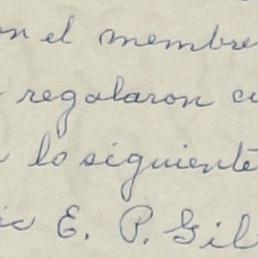 on el membre
regalaron cu
lo siguiente
ic E. P. Gil